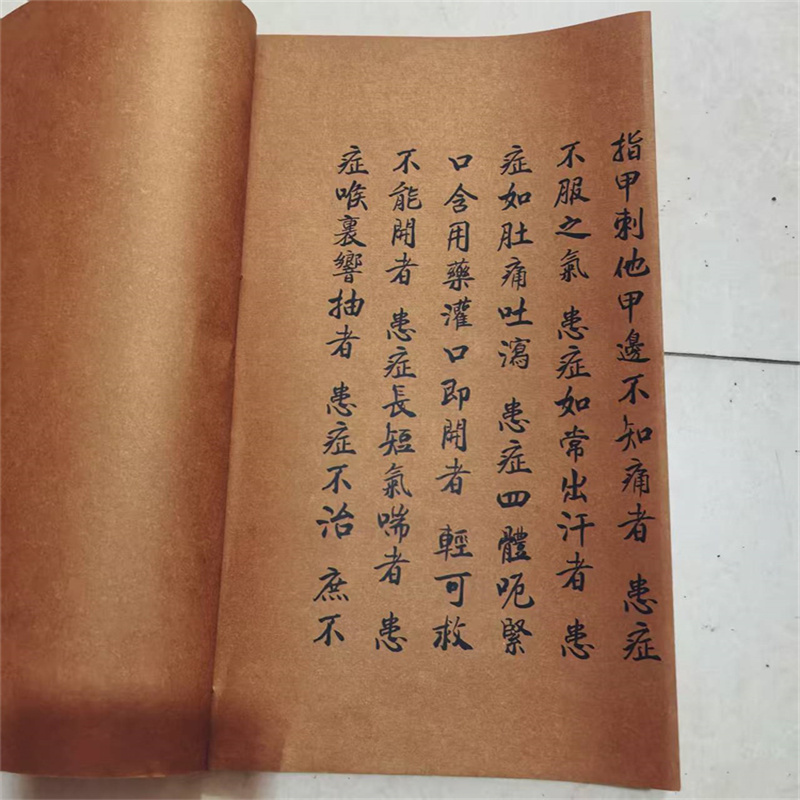 指甲刺他甲邊不知痛者 患症
不服之氣 患症如常出汗者 患
症如肚痛吐瀉 患症四體呃緊
口含用藥灌口即開者 輕可救
不能開者 患症長短氣喘者 患
症喉裏響抽者 患症不治 庶不